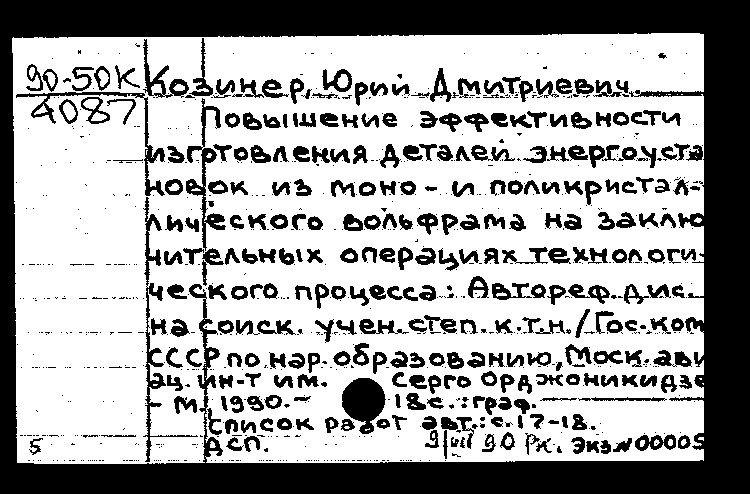 90-50К Козинер, Юрий Дмитриевич.
4087 Повышение эффективности
изготовления деталей энергоуста
новок из моно- и поликристал-
лического вольфрама на заклю
чительных операциях технологи-
ческого процесса: Автореф. дис.
на соиск. учен. степ. к.т.н./Гос. ком
СССР по нар. образованию, Моск. ави
ац. ин-т им. Серго Орджоникидзе
- М., 1990. - 18 с.: граф.
Список работ авт.: с. 17-18.
5 ДСП. 9/VIII 90 РЖ. Экз. N 00005